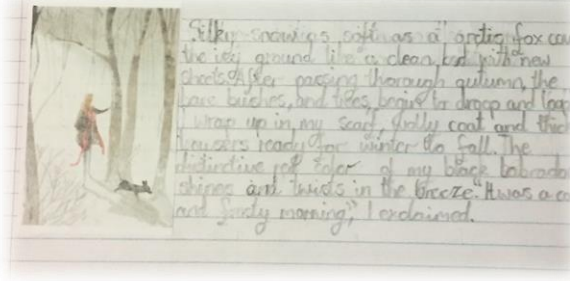 Silky snow as soft as a arctic fox cov
the icy ground like a clean bed with new
sheets. After passing thorough autumn, the
bare bushes, and trees, begin to droop and
I wrap up in my scarf, coat and thick
trousers ready for winter to fall. The
distinctive color of my black labrado
shines and twists in the breeze. "It was a
and morning," I exclaimed.